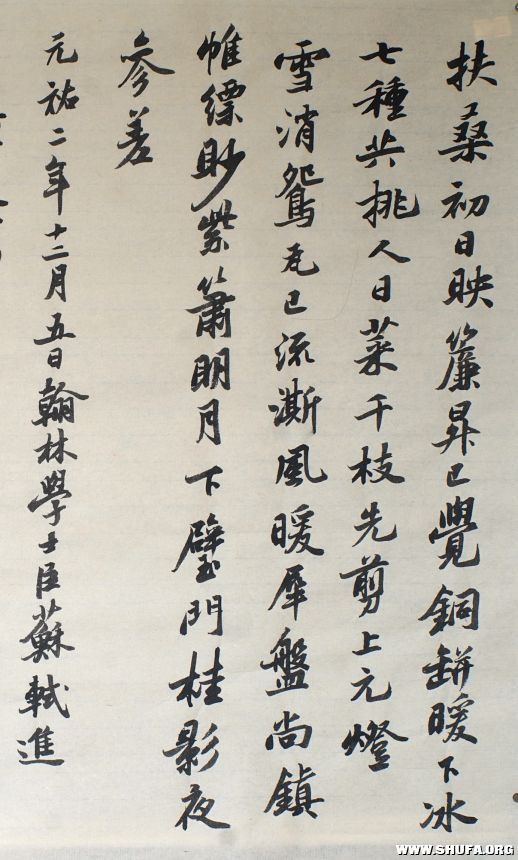 扶桑初日映簾昇已覺銅鉼暖下冰
七種共挑人日菜千枝先剪上元燈
雪消鴛瓦已流澌風暖犀盤尚鎮
帷縹眇紫簫明月下璧門桂影夜
參差
元祐二年十二月五日翰林學士臣蘇軾進
WWW.SHUFA.ORG